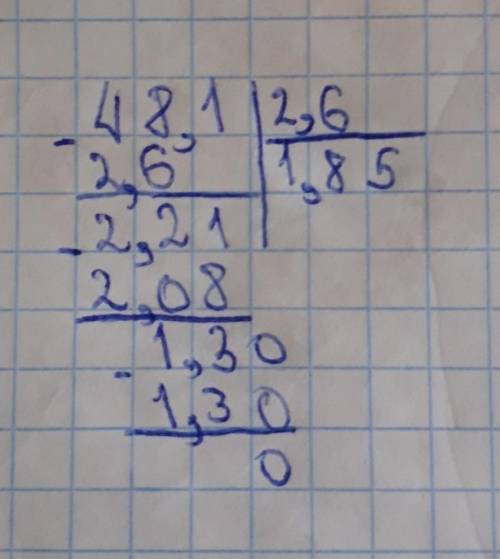 - 48,1 | 2,6
2,6 | 1,85
- 2,21
2,08
- 1,30
1,30
0